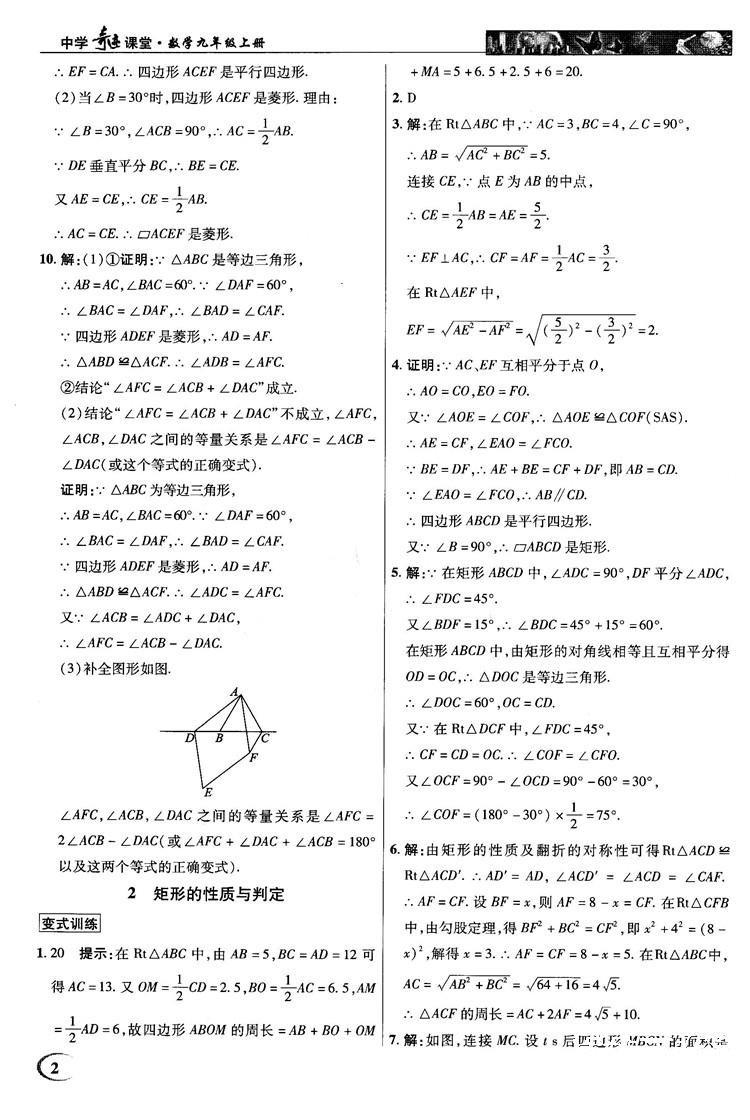 中学奇迹课堂·数学九年级上册
∴ EF = CA. ∴ 四边形 ACEF 是平行四边形.
(2)当∠B = 30°时,四边形 ACEF 是菱形. 理由:
∵ ∠B = 30°,∠ACB = 90°,∴ AC = 1/2 AB.
∵ DE 垂直平分 BC,∴ BE = CE.
又 AE = CE,∴ CE = 1/2 AB.
∴ AC = CE. ∴ ▱ACEF 是菱形.
10. 解:(1)①证明:∵ △ABC 是等边三角形,
∴ AB = AC,∠BAC = 60°. ∵ ∠DAF = 60°,
∴ ∠BAC = ∠DAF,∴ ∠BAD = ∠CAF.
∵ 四边形 ADEF 是菱形,∴ AD = AF.
∴ △ABD ≌ △ACF. ∴ ∠ADB = ∠AFC.
②结论“∠AFC = ∠ACB + ∠DAC”成立.
(2)结论“∠AFC = ∠ACB + ∠DAC”不成立,∠AFC,
∠ACB,∠DAC 之间的等量关系是∠AFC = ∠ACB -
∠DAC(或这个等式的正确变式).
证明:∵ △ABC 为等边三角形,
∴ AB = AC,∠BAC = 60°. ∵ ∠DAF = 60°,
∴ ∠BAC = ∠DAF,∴ ∠BAD = ∠CAF.
∵ 四边形 ADEF 是菱形,∴ AD = AF.
∴ △ABD ≌ △ACF. ∴ ∠ADC = ∠AFC.
又∵ ∠ACB = ∠ADC + ∠DAC,
∴ ∠AFC = ∠ACB - ∠DAC.
(3)补全图形如图.
A
D B C
F
E
∠AFC,∠ACB,∠DAC 之间的等量关系是∠AFC =
2∠ACB - ∠DAC(或∠AFC + ∠DAC + ∠ACB = 180°
以及这两个等式的正确变式).
2 矩形的性质与判定
变式训练
1. 20 提示:在 Rt△ABC 中,由 AB = 5,BC = AD = 12 可
得 AC = 13. 又 OM = 1/2 CD = 2.5,BO = 1/2 AC = 6.5,AM
= 1/2 AD = 6,故四边形 ABOM 的周长 = AB + BO + OM
2
+ MA = 5 + 6.5 + 2.5 + 6 = 20.
2. D
3. 解:在 Rt△ABC 中,∵ AC = 3,BC = 4,∠C = 90°,
∴ AB = √(AC² + BC²) = 5.
连接 CE,∵ 点 E 为 AB 的中点,
∴ CE = 1/2 AB = AE = 5/2.
∵ EF⊥AC,∴ CF = AF = 1/2 AC = 3/2.
在 Rt△AEF 中,
EF = √(AE² - AF²) = √((5/2)² - (3/2)²) = 2.
4. 证明:∵ AC、EF 互相平分于点 O,
∴ AO = CO,EO = FO.
又∵ ∠AOE = ∠COF,∴ △AOE ≌ △COF(SAS).
∴ AE = CF,∠EAO = ∠FCO.
∵ BE = DF,∴ AE + BE = CF + DF,即 AB = CD.
∵ ∠EAO = ∠FCO,∴ AB∥CD.
∴ 四边形 ABCD 是平行四边形.
又∵ ∠B = 90°,∴ ▱ABCD 是矩形.
5. 解:∵ 在矩形 ABCD 中,∠ADC = 90°,DF 平分∠ADC,
∴ ∠FDC = 45°.
又∠BDF = 15°,∴ ∠BDC = 45° + 15° = 60°.
在矩形 ABCD 中,由矩形的对角线相等且互相平分得
OD = OC,∴ △DOC 是等边三角形.
∴ ∠DOC = 60°,OC = CD.
又∵ 在 Rt△DCF 中,∠FDC = 45°,
∴ CF = CD = OC. ∴ ∠COF = ∠CFO.
又∠OCF = 90° - ∠OCD = 90° - 60° = 30°,
∴ ∠COF = (180° - 30°) × 1/2 = 75°.
6. 解:由矩形的性质及翻折的对称性可得 Rt△ACD ≌
Rt△ACD′. ∴ AD′ = AD, ∠ACD′ = ∠ACD = ∠CAF.
∴ AF = CF. 设 BF = x,则 AF = 8 - x = CF. 在 Rt△CFB
中,由勾股定理,得 BF² + BC² = CF²,即 x² + 4² = (8 -
x)²,解得 x = 3. ∴ AF = CF = 8 - x = 5. 在 Rt△ABC 中,
AC = √(AB² + BC²) = √(64 + 16) = 4√5.
∴ △ACF 的周长 = AC + 2AF = 4√5 + 10.
7. 解:如图,连接 MC. 设 t s 后四边形 MBCN 的面积是